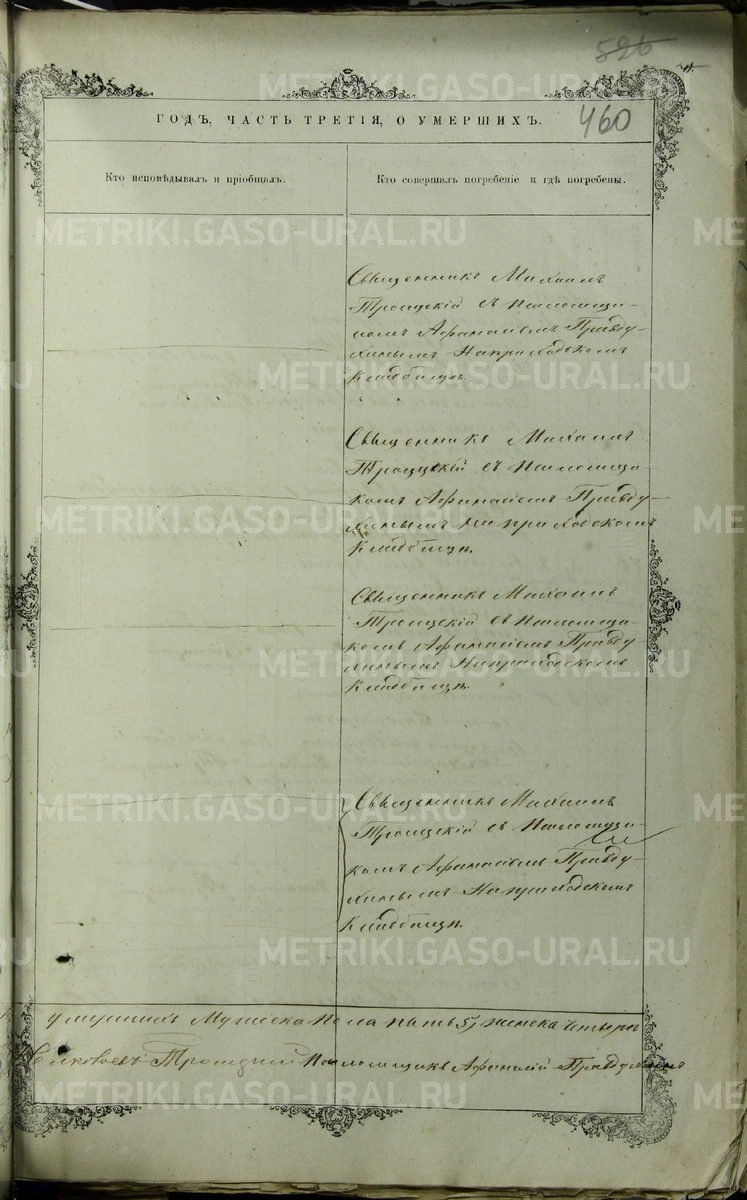 526
460
ГОДЪ, ЧАСТЬ ТРЕТІЯ, О УМЕРШИХЪ.
Кто исповѣдывалъ и пріобщалъ.
Кто совершалъ погребеніе и гдѣ погребены.
Священникъ Михаилъ
Троицкій съ Псаломщи-
комъ Афанасіемъ Правду-
хинымъ На приходскомъ
Кладбищѣ.
Священникъ Михаилъ
Троицкій съ Псаломщи-
комъ Афанасіемъ Правду-
хинымъ на приходскомъ
Кладбищѣ.
Священникъ Михаилъ
Троицкій съ Псаломщи-
комъ Афанасіемъ Правду-
хинымъ На приходскомъ
Кладбищѣ.
Священникъ Михаилъ
Троицкій съ Псаломщи-
комъ Афанасіемъ Правду-
хинымъ На приходскомъ
Кладбищѣ.
умершихъ Мужеска пола пять 5, женска четыре
Троицкій Псаломщикъ Афанасій Правдухинъ
METRIKI.GASO-URAL.RU